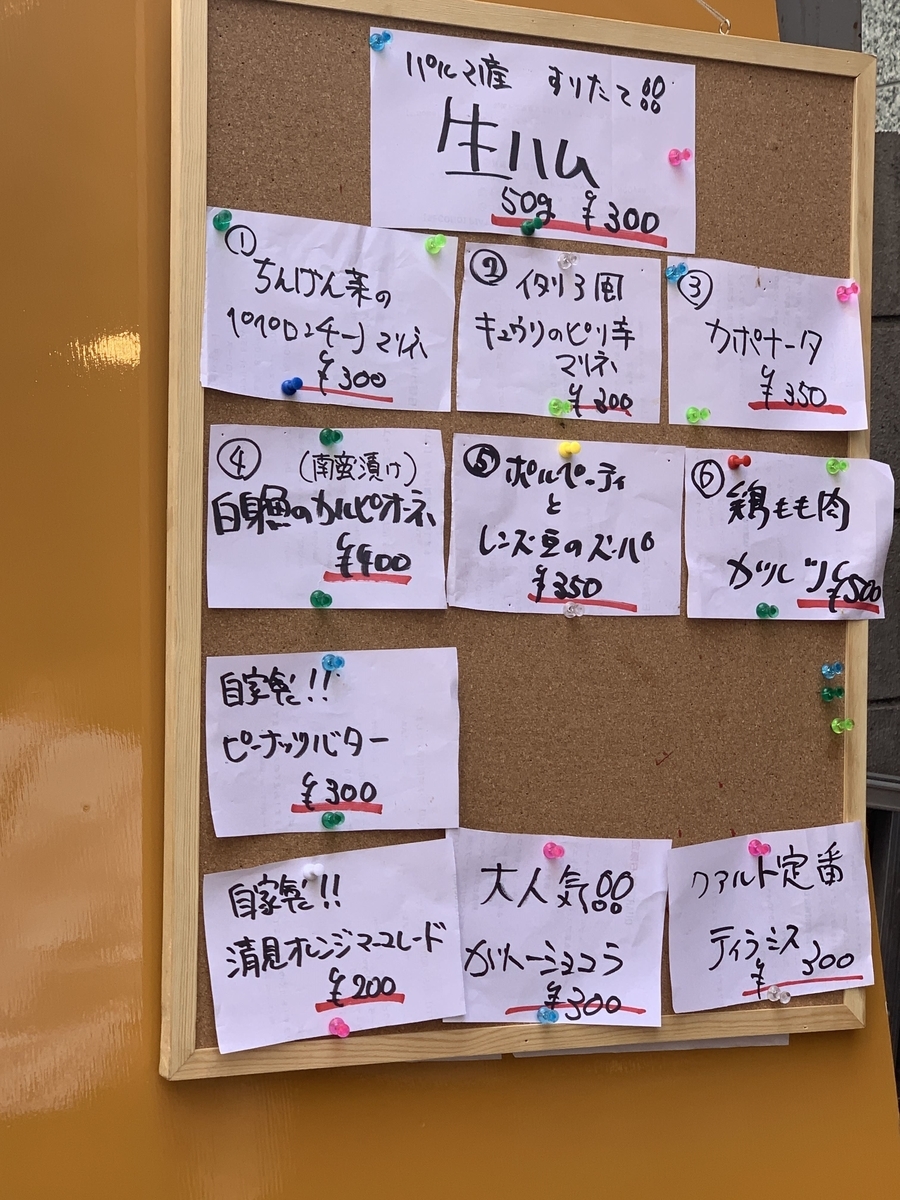 パルマ産 すりたて!!
生ハム
50g ¥300
①
ちんげん菜の
ペペロンチーノマリネ
¥300
②
イタリア風
キュウリのピリ辛
マリネ
¥300
③
カポナータ
¥350
④
(南蛮漬け)
白身魚のカルピオーネ
¥400
⑤
ポルペーティ
と
レンズ豆のズーパ
¥350
⑥
鶏もも肉
¥500
自家製!!
ピーナッツバター
¥300
自家製!!
清見オレンジマーマレード
¥200
大人気!!
ガトーショコラ
¥300
クアルト定番
ティラミス
¥300